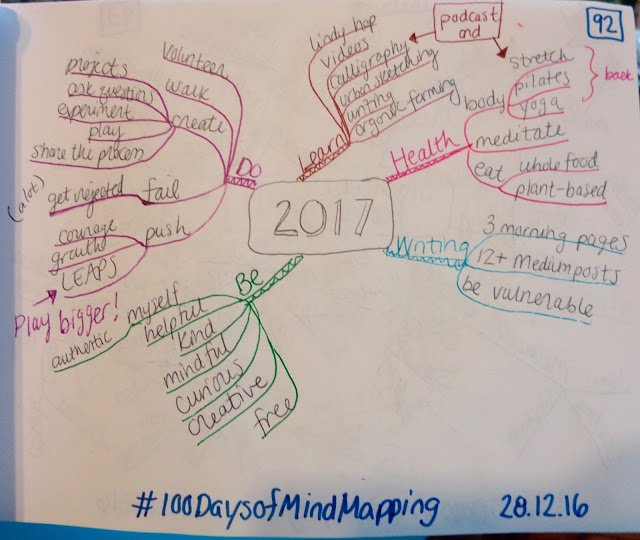 92
podcast
and
Learn
lindy hop
videos
calligraphy
urban sketching
writing
organic farming
Health
body
stretch
pilates
yoga
back
meditate
eat
whole food
plant-based
Writing
3 morning pages
12+ Medium posts
be vulnerable
2017
Do
volunteer
walk
create
projects
ask questions
experiment
play
share the process
fail
get rejected
(a lot)
push
courage
gratitude
LEAPS
Play bigger!
Be
myself
authentic
helpful
kind
mindful
curious
creative
free
#100DaysofMindMapping 28.12.16